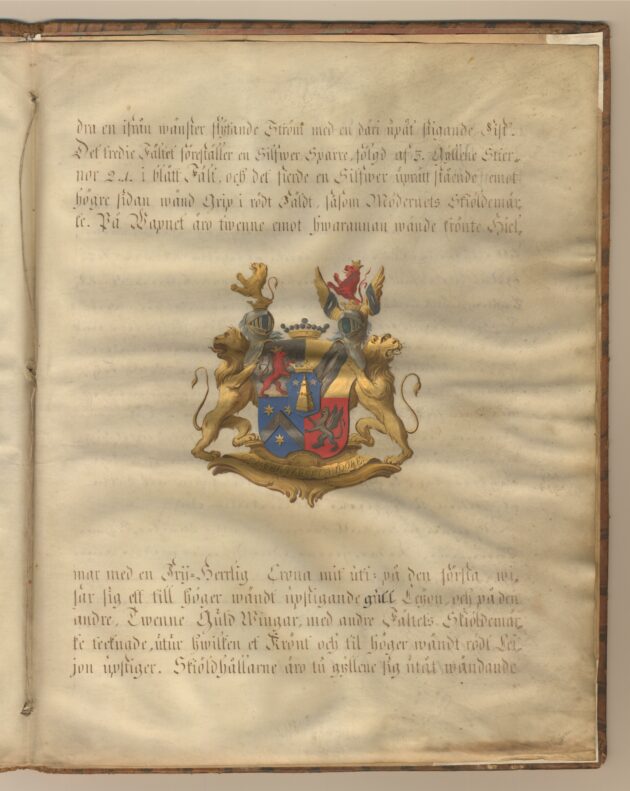 dra en ifrån wänster flytande Ström med en däri upåt stigande Fisk.
Det tredie Fältet föreställer en Silfwer Sparre, följd af 3. Gyllene Stier-
nor 2.1. i blått Fält, och det fierde en Silfwer uprätt stående, emot
högre sidan wänd Grip i rödt Fäldt, såsom Mödernets Skiöldemär,
ke. På Wapnet äro twenne emot hwarannan wände krönte Hiel,
mar med en Frij-Herrlig Crona mit uti: på den första, wi,
sar sig ett till höger wändt upstigande gull Leijon, och på den
andre, Twenne Guld Wingar, med andre Fältets Skiöldemär,
ke tecknade, utur hwilken et Krönt och til höger wändt rödt Lei,
jon upstiger. Skiöldhållarne äro tu gyllene sig utåt wändande